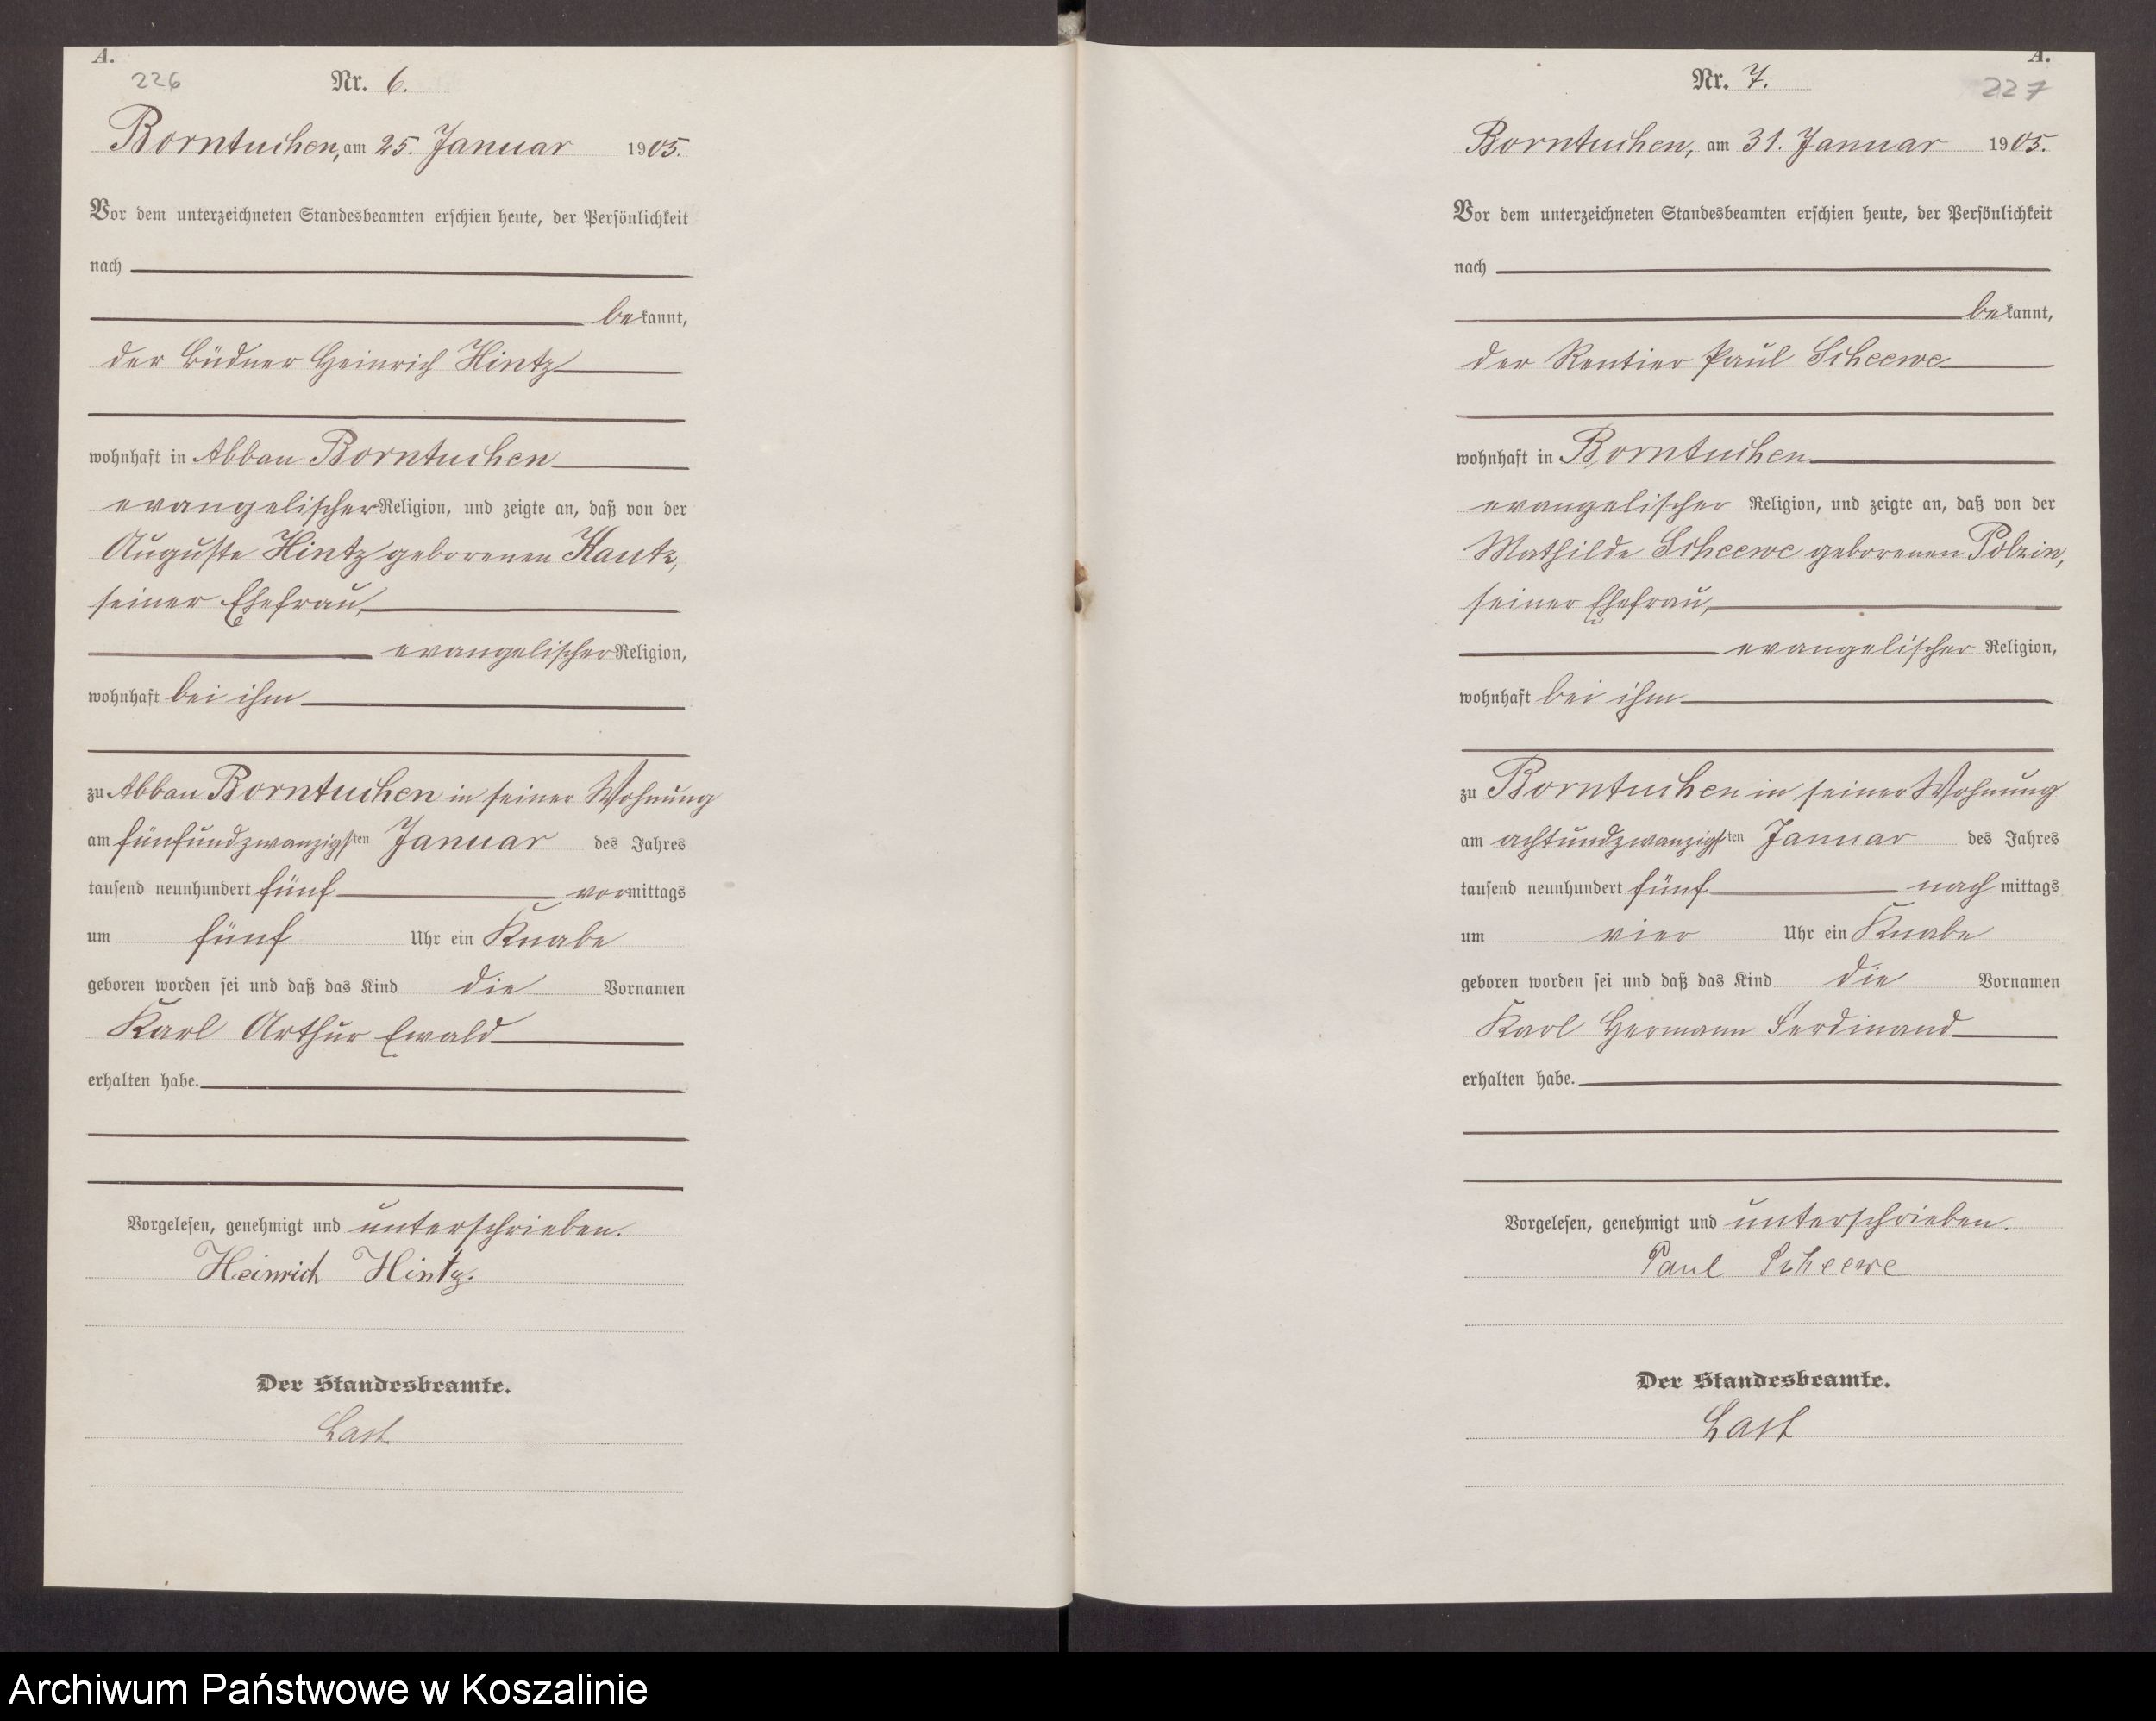 A.
226
Nr. 6.
Borntuchen, am 25. Januar 1905.
Vor dem unterzeichneten Standesbeamten erschien heute, der Persönlichkeit
nach
bekannt,
der Büdner Heinrich Hintz
wohnhaft in Abbau Borntuchen
evangelischer Religion, und zeigte an, daß von der
Auguste Hintz geborenen Kautz,
seiner Ehefrau,
evangelischer Religion,
wohnhaft bei ihm
zu Abbau Borntuchen in seiner Wohnung
am fünfundzwanzigsten Januar des Jahres
tausend neunhundert fünf vormittags
um fünf Uhr ein Knabe
geboren worden sei und daß das Kind die Vornamen
Karl Arthur Ewald
erhalten habe.
Vorgelesen, genehmigt und unterschrieben.
Heinrich Hintz.
Der Standesbeamte.
Last
A.
227
Nr. 7.
Borntuchen, am 31. Januar 1905.
Vor dem unterzeichneten Standesbeamten erschien heute, der Persönlichkeit
nach
bekannt,
der Rentier Paul Scheewe
wohnhaft in Borntuchen
evangelischer Religion, und zeigte an, daß von der
Mathilde Scheewe geborenen Polzin,
seiner Ehefrau,
evangelischer Religion,
wohnhaft bei ihm
zu Borntuchen in seiner Wohnung
am achtundzwanzigsten Januar des Jahres
tausend neunhundert fünf nachmittags
um vier Uhr ein Knabe
geboren worden sei und daß das Kind die Vornamen
Karl Hermann Ferdinand
erhalten habe.
Vorgelesen, genehmigt und unterschrieben.
Paul Scheewe
Der Standesbeamte.
Last
Archiwum Państwowe w Koszalinie